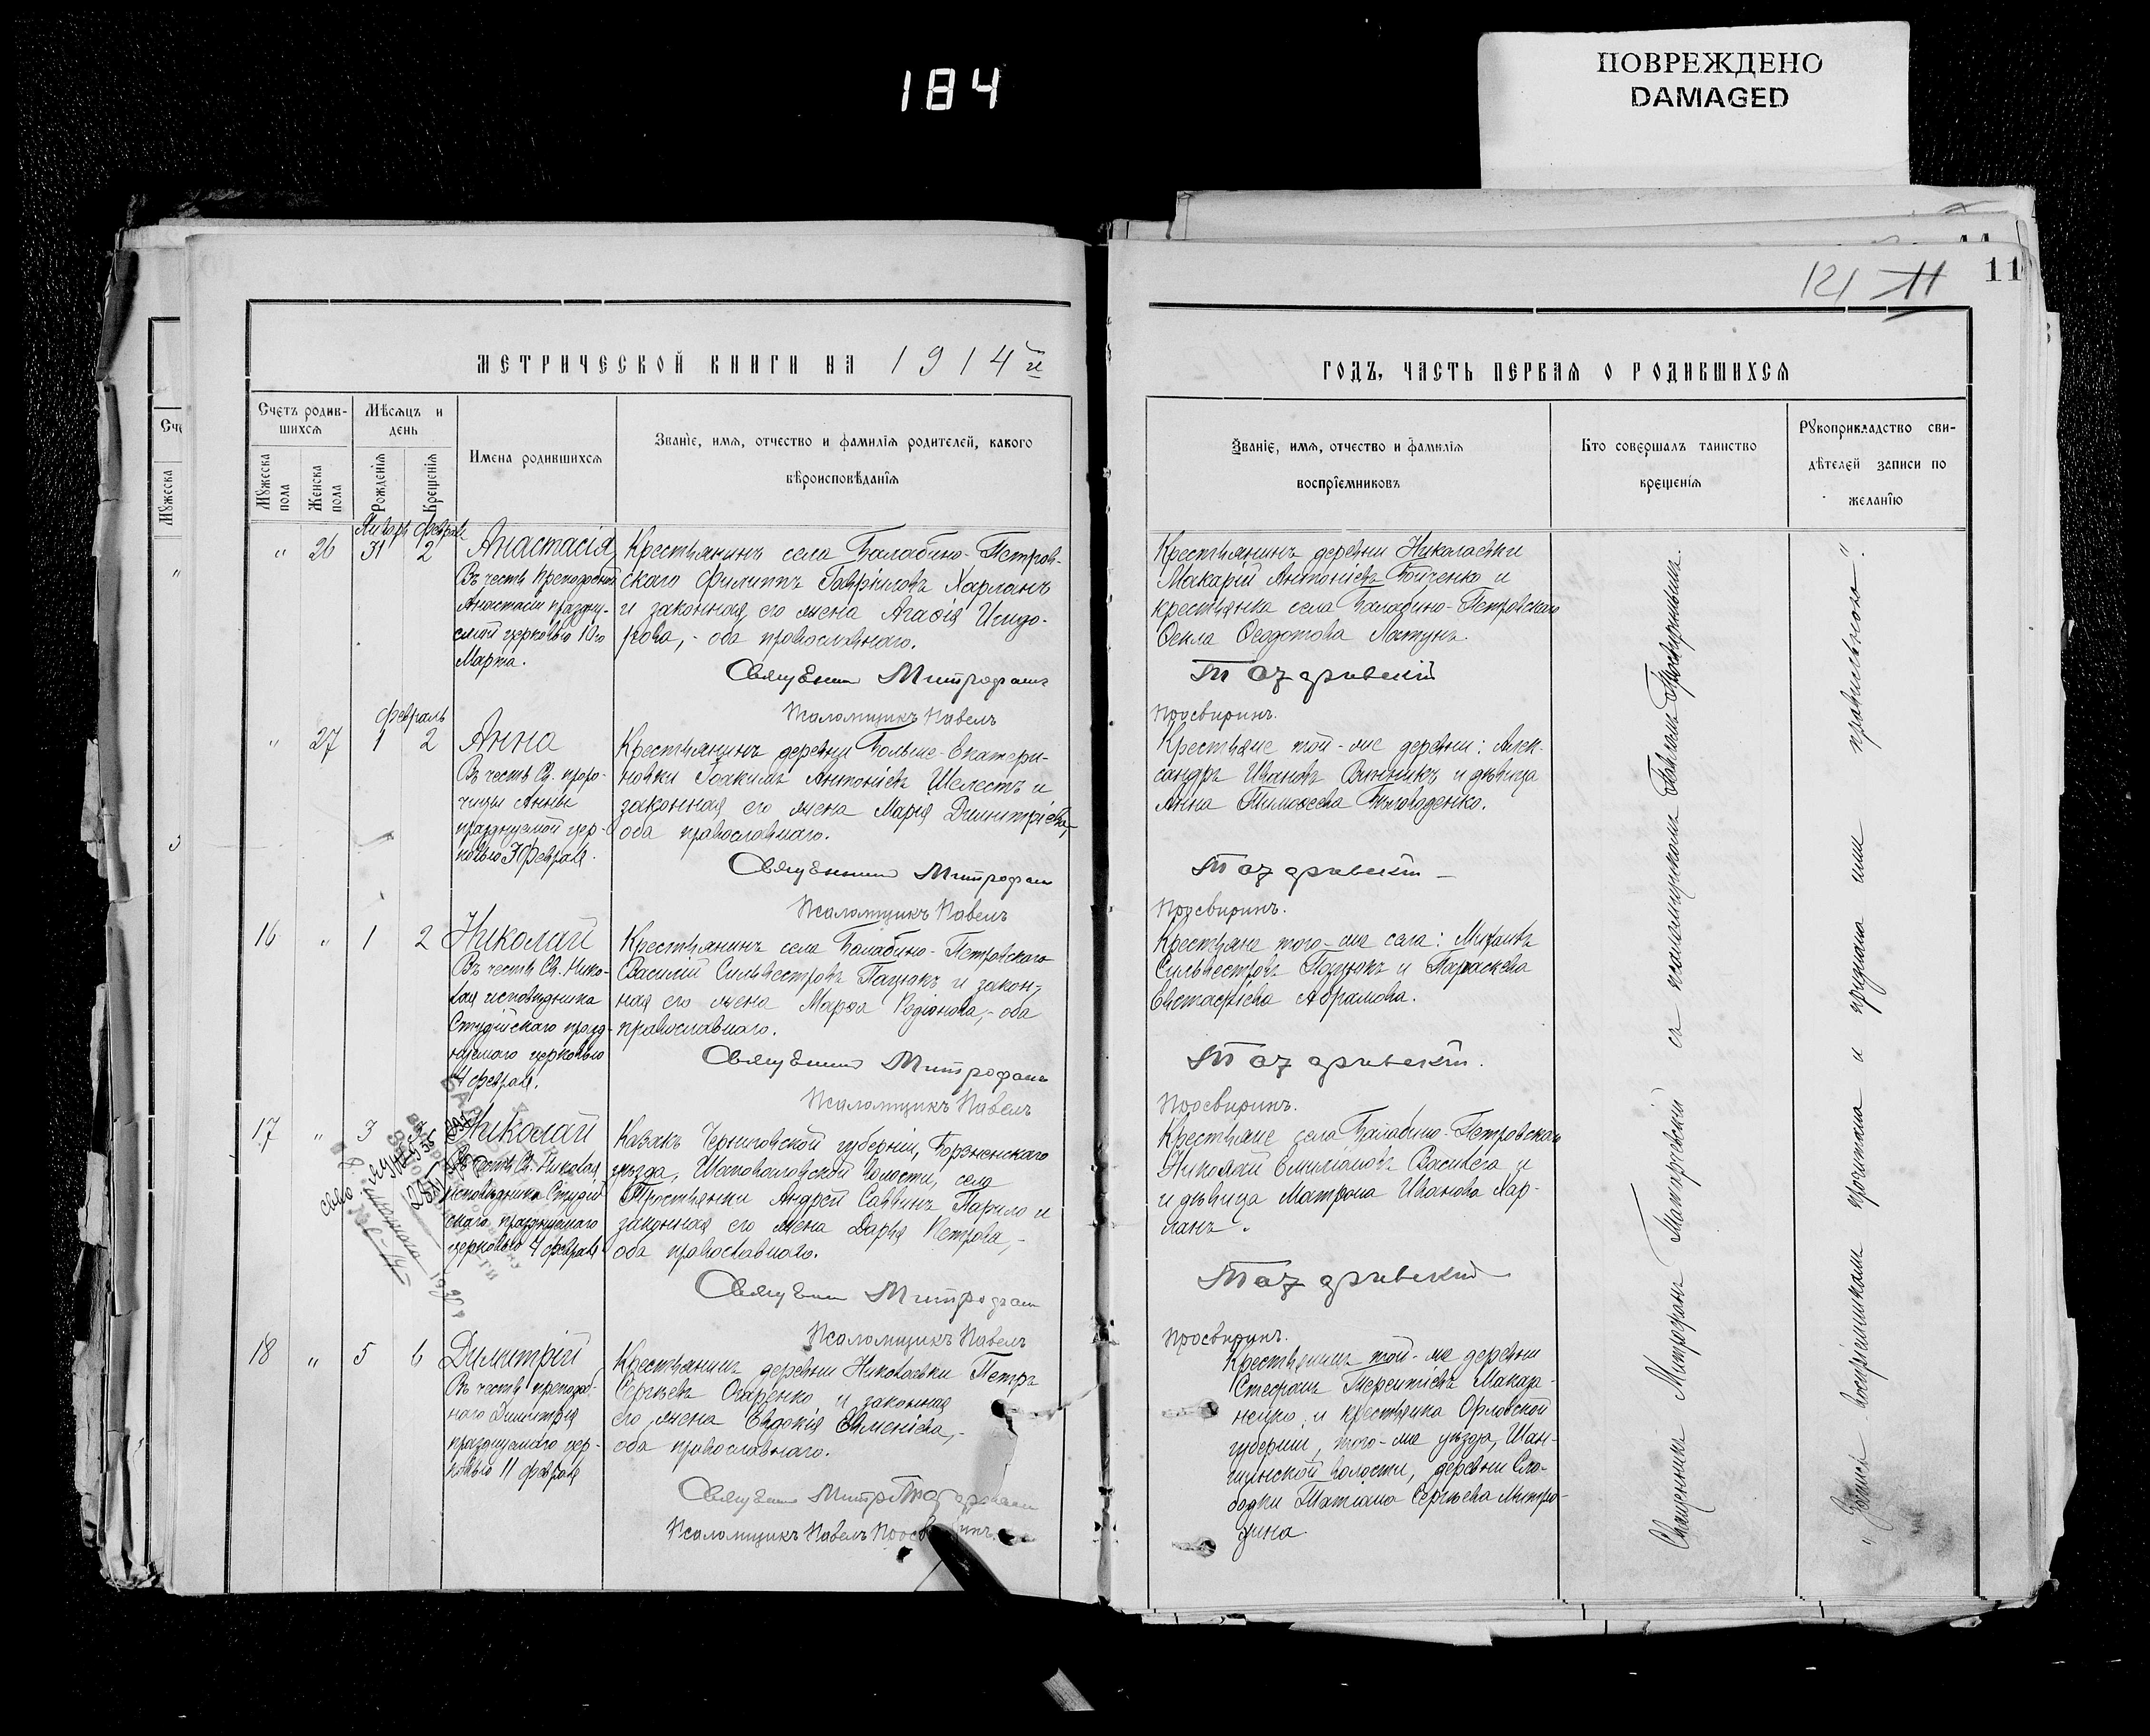 184
ПОВРЕЖДЕНО
DAMAGED
121 11
11
МЕТРИЧЕСКОЙ КНИГИ НА 1914й
ГОДЪ, ЧАСТЬ ПЕРВАЯ О РОДИВШИХСЯ
Счетъ родив-
шихся
Мѣсяцъ и
день
Мужеска
пола
Женска
пола
Рожденія
Крещенія
Имена родившихся
Званіе, имя, отчество и фамилія родителей, какого
вѣроисповѣданія
Званіе, имя, отчество и фамилія
воспріемниковъ
Кто совершалъ таинство
крещенія
Рукоприкладство сви-
дѣтелей записи по
желанію
Январь Февраль
" 26 31 2 Анастасія
Въ честь Преподобной
Анастасіи праздну-
емой церковью 10го
Марта.
Крестьянинъ села Балабино-Петров-
скаго Филиппъ Гавріиловъ Харланъ
и законная его жена Агафія Исидо-
рова, - оба православнаго.
Священникъ Митрофанъ
Псаломщикъ Павелъ
Крестьянинъ деревни Николаевки
Макарій Антоніевъ Бойченко и
крестьянка села Балабино-Петровскаго
Ѳекла Ѳеодотова Латунъ.
Татаревскій
Просвиринъ.
Февраль
" 27 1 2 Анна
Въ честь Св. проро-
чицы Анны
празднуемой цер-
ковью 3 февраля.
Крестьянинъ деревни Больше-Екатери-
новки Іоакимъ Антоніевъ Шелестъ и
законная его жена Марія Димитріева,-
оба православнаго.
Священникъ Митрофанъ
Псаломщикъ Павелъ
Крестьяне той-же деревни: Алек-
сандръ Ивановъ Винникъ и дѣвица
Анна Тимоѳеева Бѣловоденко.
Татаревскій
Просвиринъ.
16 " 1 2 Николай
Въ честь Св. Нико-
лая исповѣдника
Студійскаго празд-
нуемаго церковью
4 февраля.
Крестьянинъ села Балабино-Петровскаго
Василій Сильвестровъ Пацюкъ и закон-
ная его жена Марѳа Родіонова,- оба
православнаго.
Священникъ Митрофанъ
Псаломщикъ Павелъ
Крестьяне того-же села: Михаилъ
Сильвестровъ Пацюкъ и Параскева
Евстафіева Абрамова.
Татаревскій.
Просвиринъ.
17 " 3 Николай
честь Св. Николая
исповѣдника Студій
скаго празднуемаго
церковью 4 февраля
Казакъ Черниговской губерніи, Борзненскаго
уѣзда, Шаповаловской волости, села
Тростянки Андрей Саввинъ Парило и
законная его жена Дарья Петрова,-
оба православнаго.
Священникъ Митрофанъ
Псаломщикъ Павелъ
Крестьяне села Балабино-Петровскаго
Николай Емиліановъ Васильега и
и дѣвица Матрона Иванова Хар-
ланъ.
Татаревскій
Просвиринъ.
18 " 5 6 Димитрій
Въ честь преподоб-
наго Димитрія
празднуемаго цер-
ковью 11 февраля
Крестьянинъ деревни Николаевки Петръ
Сергѣевъ Опаренко и законная
его жена Евдокія Евменіева,-
оба православнаго.
Священникъ Татаревскій
Псаломщикъ Павелъ Просвиринъ.
Крестьянинъ той-же деревни
Стефанъ Терентіевъ Макар-
ненко и крестьянка Орловской
губерніи, того-же уѣзда,
волости, деревни Сло-
бодки Татіана Сергѣева Митро-
хина
Священникъ Митрофанъ Татаревскій съ псаломщикомъ Павломъ Просвиринымъ.
" Запись воспріемникамъ прочитана и признана ими правильною".